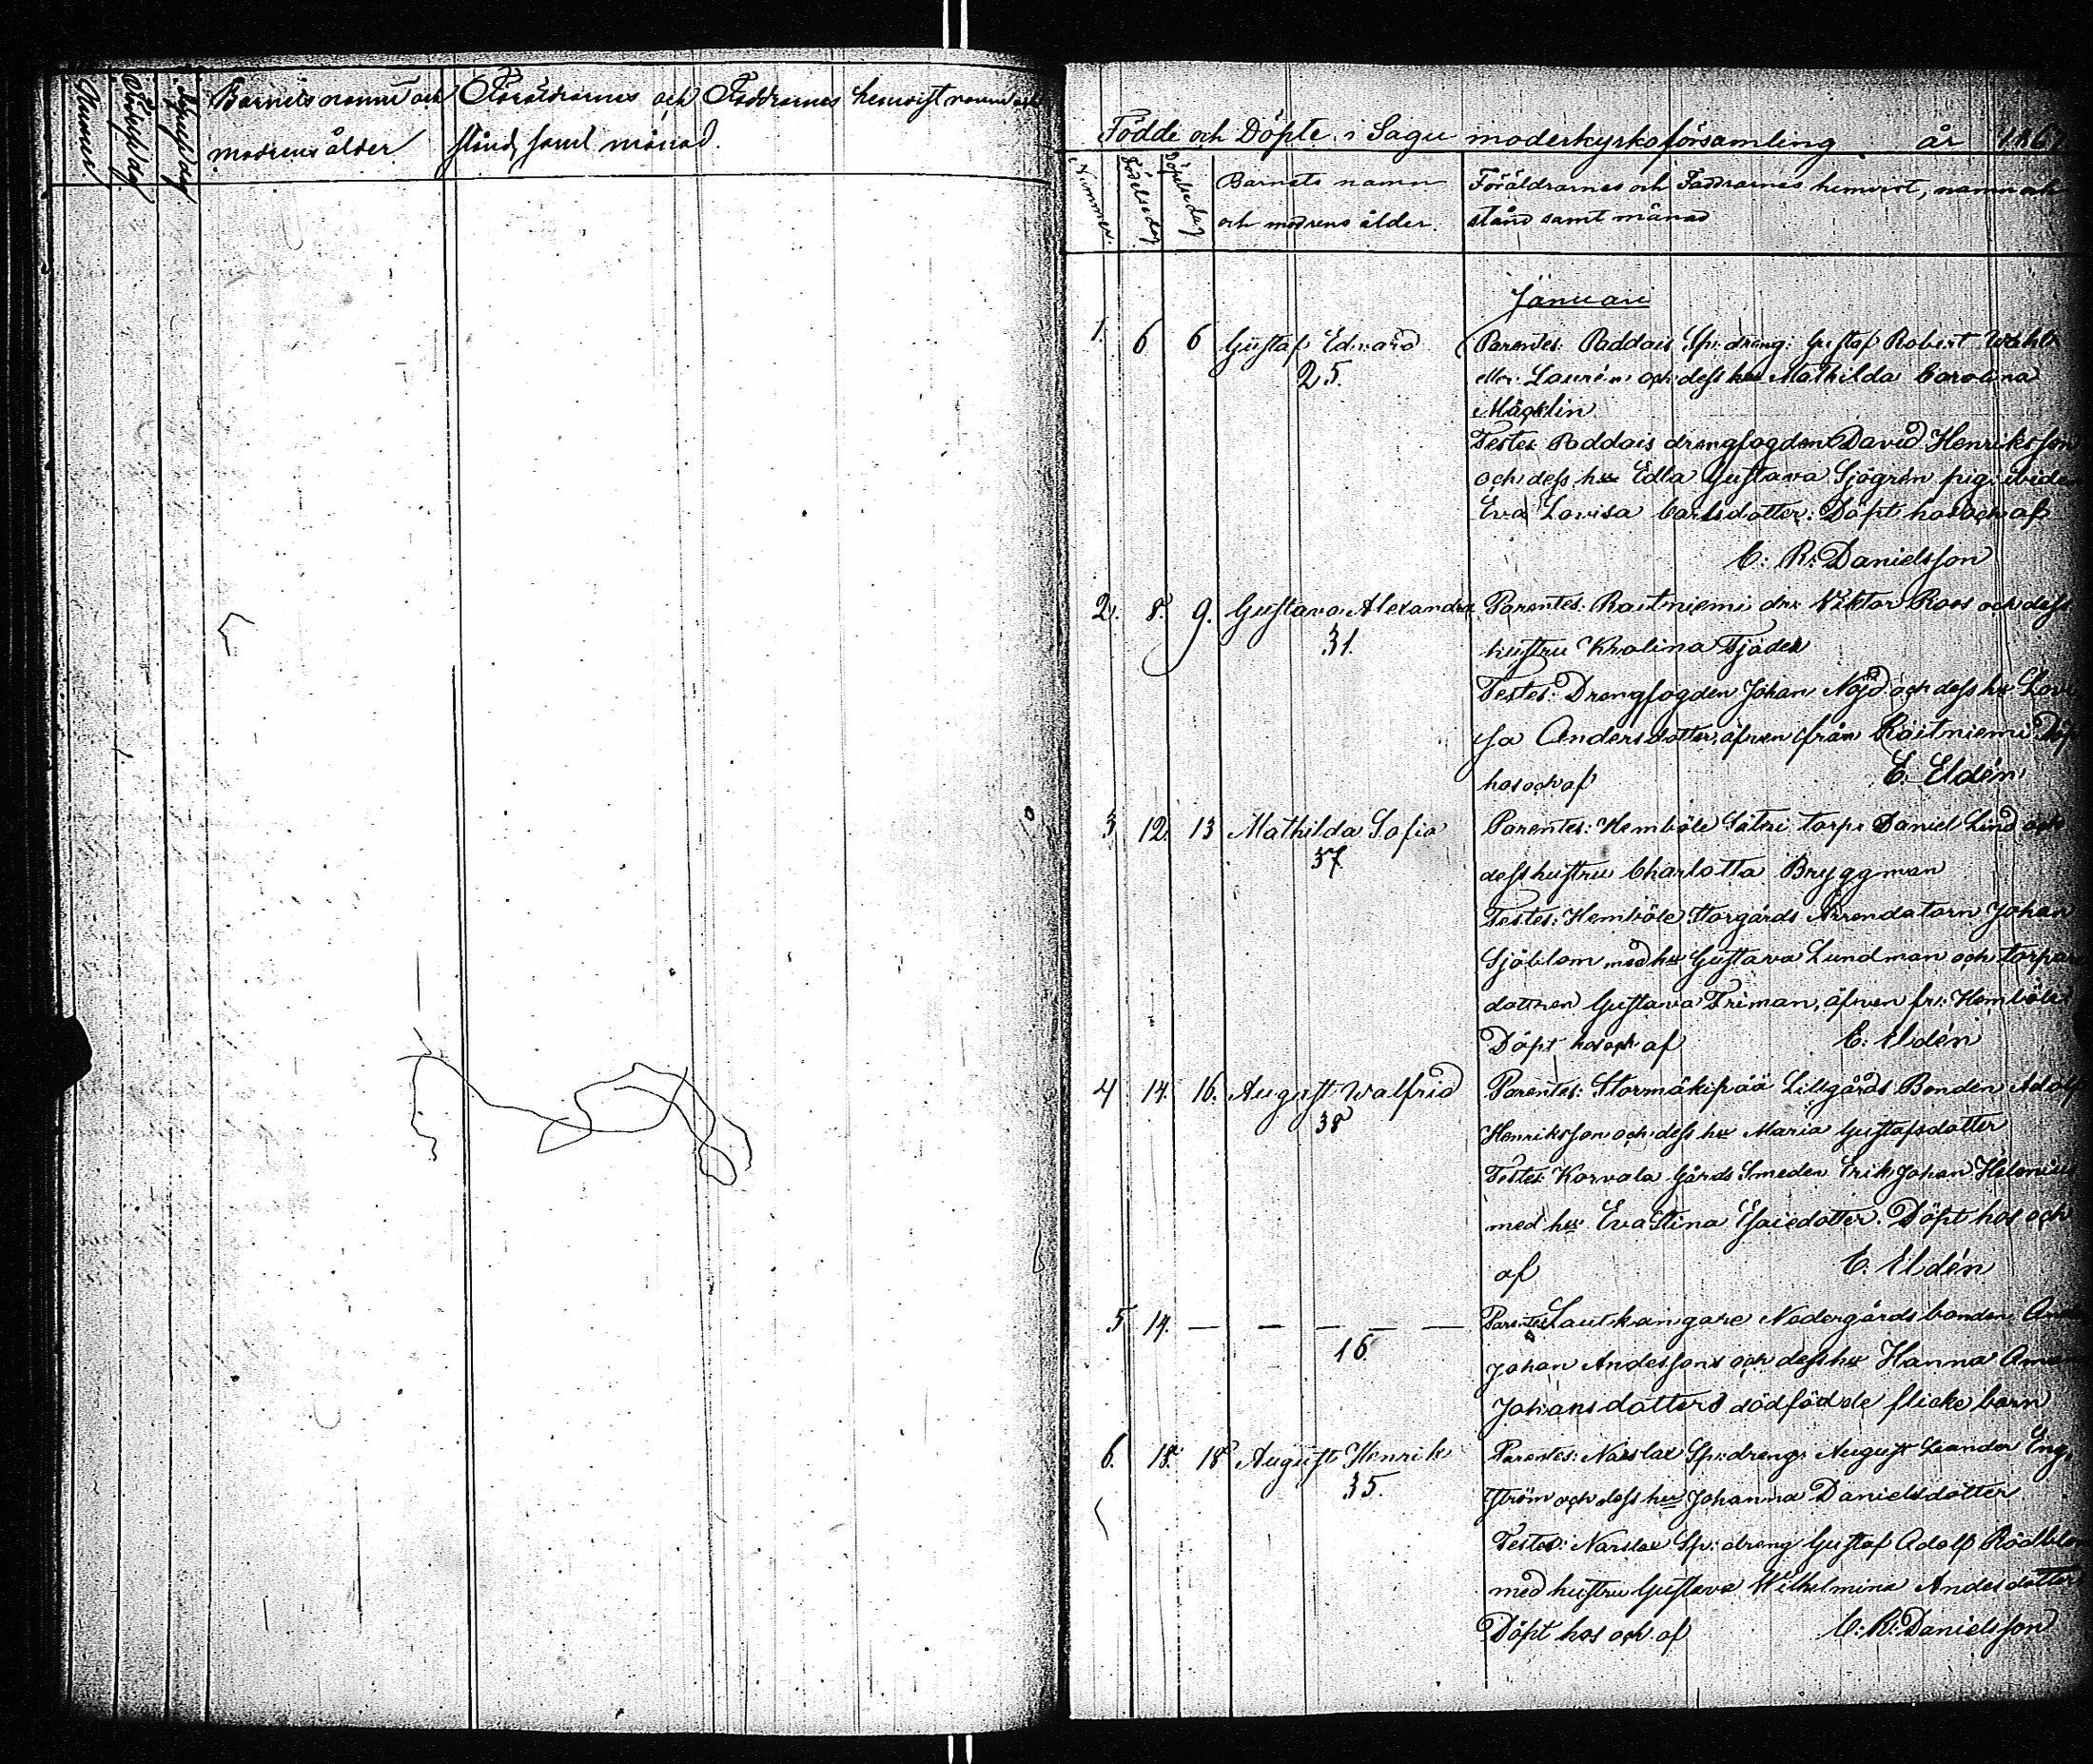 Numer
Födelsedag
Döpelsedag
Barnets namn och
modrens ålder.
Föräldrarnes och Faddrarnes hemvist namn och
stånd, samt månad.
Födde och Döpte i Sagu moderkyrkoförsamling år 186
Nummer.
Födelsedag
Döpelsedag
Barnets namn
och modrens ålder.
Föräldrarnes och Faddrarnes hemvist, namn och
stånd samt månad
Januari
1. 6 6 Gustaf Edvard Parentes: Paddais Sp: dräng: Gustaf Robert
25. eller Laurén och dess hu Mathilda Carolina
Mäcklin
Testes: Paddais drängfogden David Henriksson
och dess hu Edla Gustava Sjögrén pig: ibidem
Eva Lovisa Carlsdotter. Döpt hos och af
C: R: Danielsson
2. 8. 9. Gustava Alexandra Parentes: Raitniemi dr: Viktor Roos och dess
31. hustru Krolina Tjäder
Testes: Drängfogden Johan Nöjd och dess hu Lovi
sa Andersdotter, äfven från Raitniemi Döpt
hos och af E. Eldén
3 12. 13 Mathilda Sofia Parentes: Hemböle Säteri torp: Daniel Lind och
37 dess hustru Charlotta Bryggman
Testes: Hemböle Storgårds Arrendatorn Johan
Sjöblom med hu Gustava Lundman och torpar
dottren Gustava Friman, äfven fr: Hemböle
Döpt hos och af E. Eldén
4 14. 16. August Walfrid Parentes: Stormäkipää Lillgårds Bonden Adolf
38 Henriksson och dess hu Maria Gustafsdotter
Testes: Korvala Gårds Smeden Erik Johan Helenius
med hu Eva Stina Esaiedotter. Döpt hos och
af E. Eldén
5 14. — — — — — Parentes Lautkangare Nedergårds bonden
16. Johan Anderssons och dess hu Hanna
Johansdotters dödfödde flicke barn
6. 18. 18 August Henrik Parentes: Narslax Sp: dräng: August Leander Eng
35. ström och dess hu Johanna Danielsdotter
Testes: Narslax Sp: dräng Gustaf Adolf Rödblom
med hustru Gustava Wilhelmina Andersdotter
Döpt hos och af C: R: Danielsson